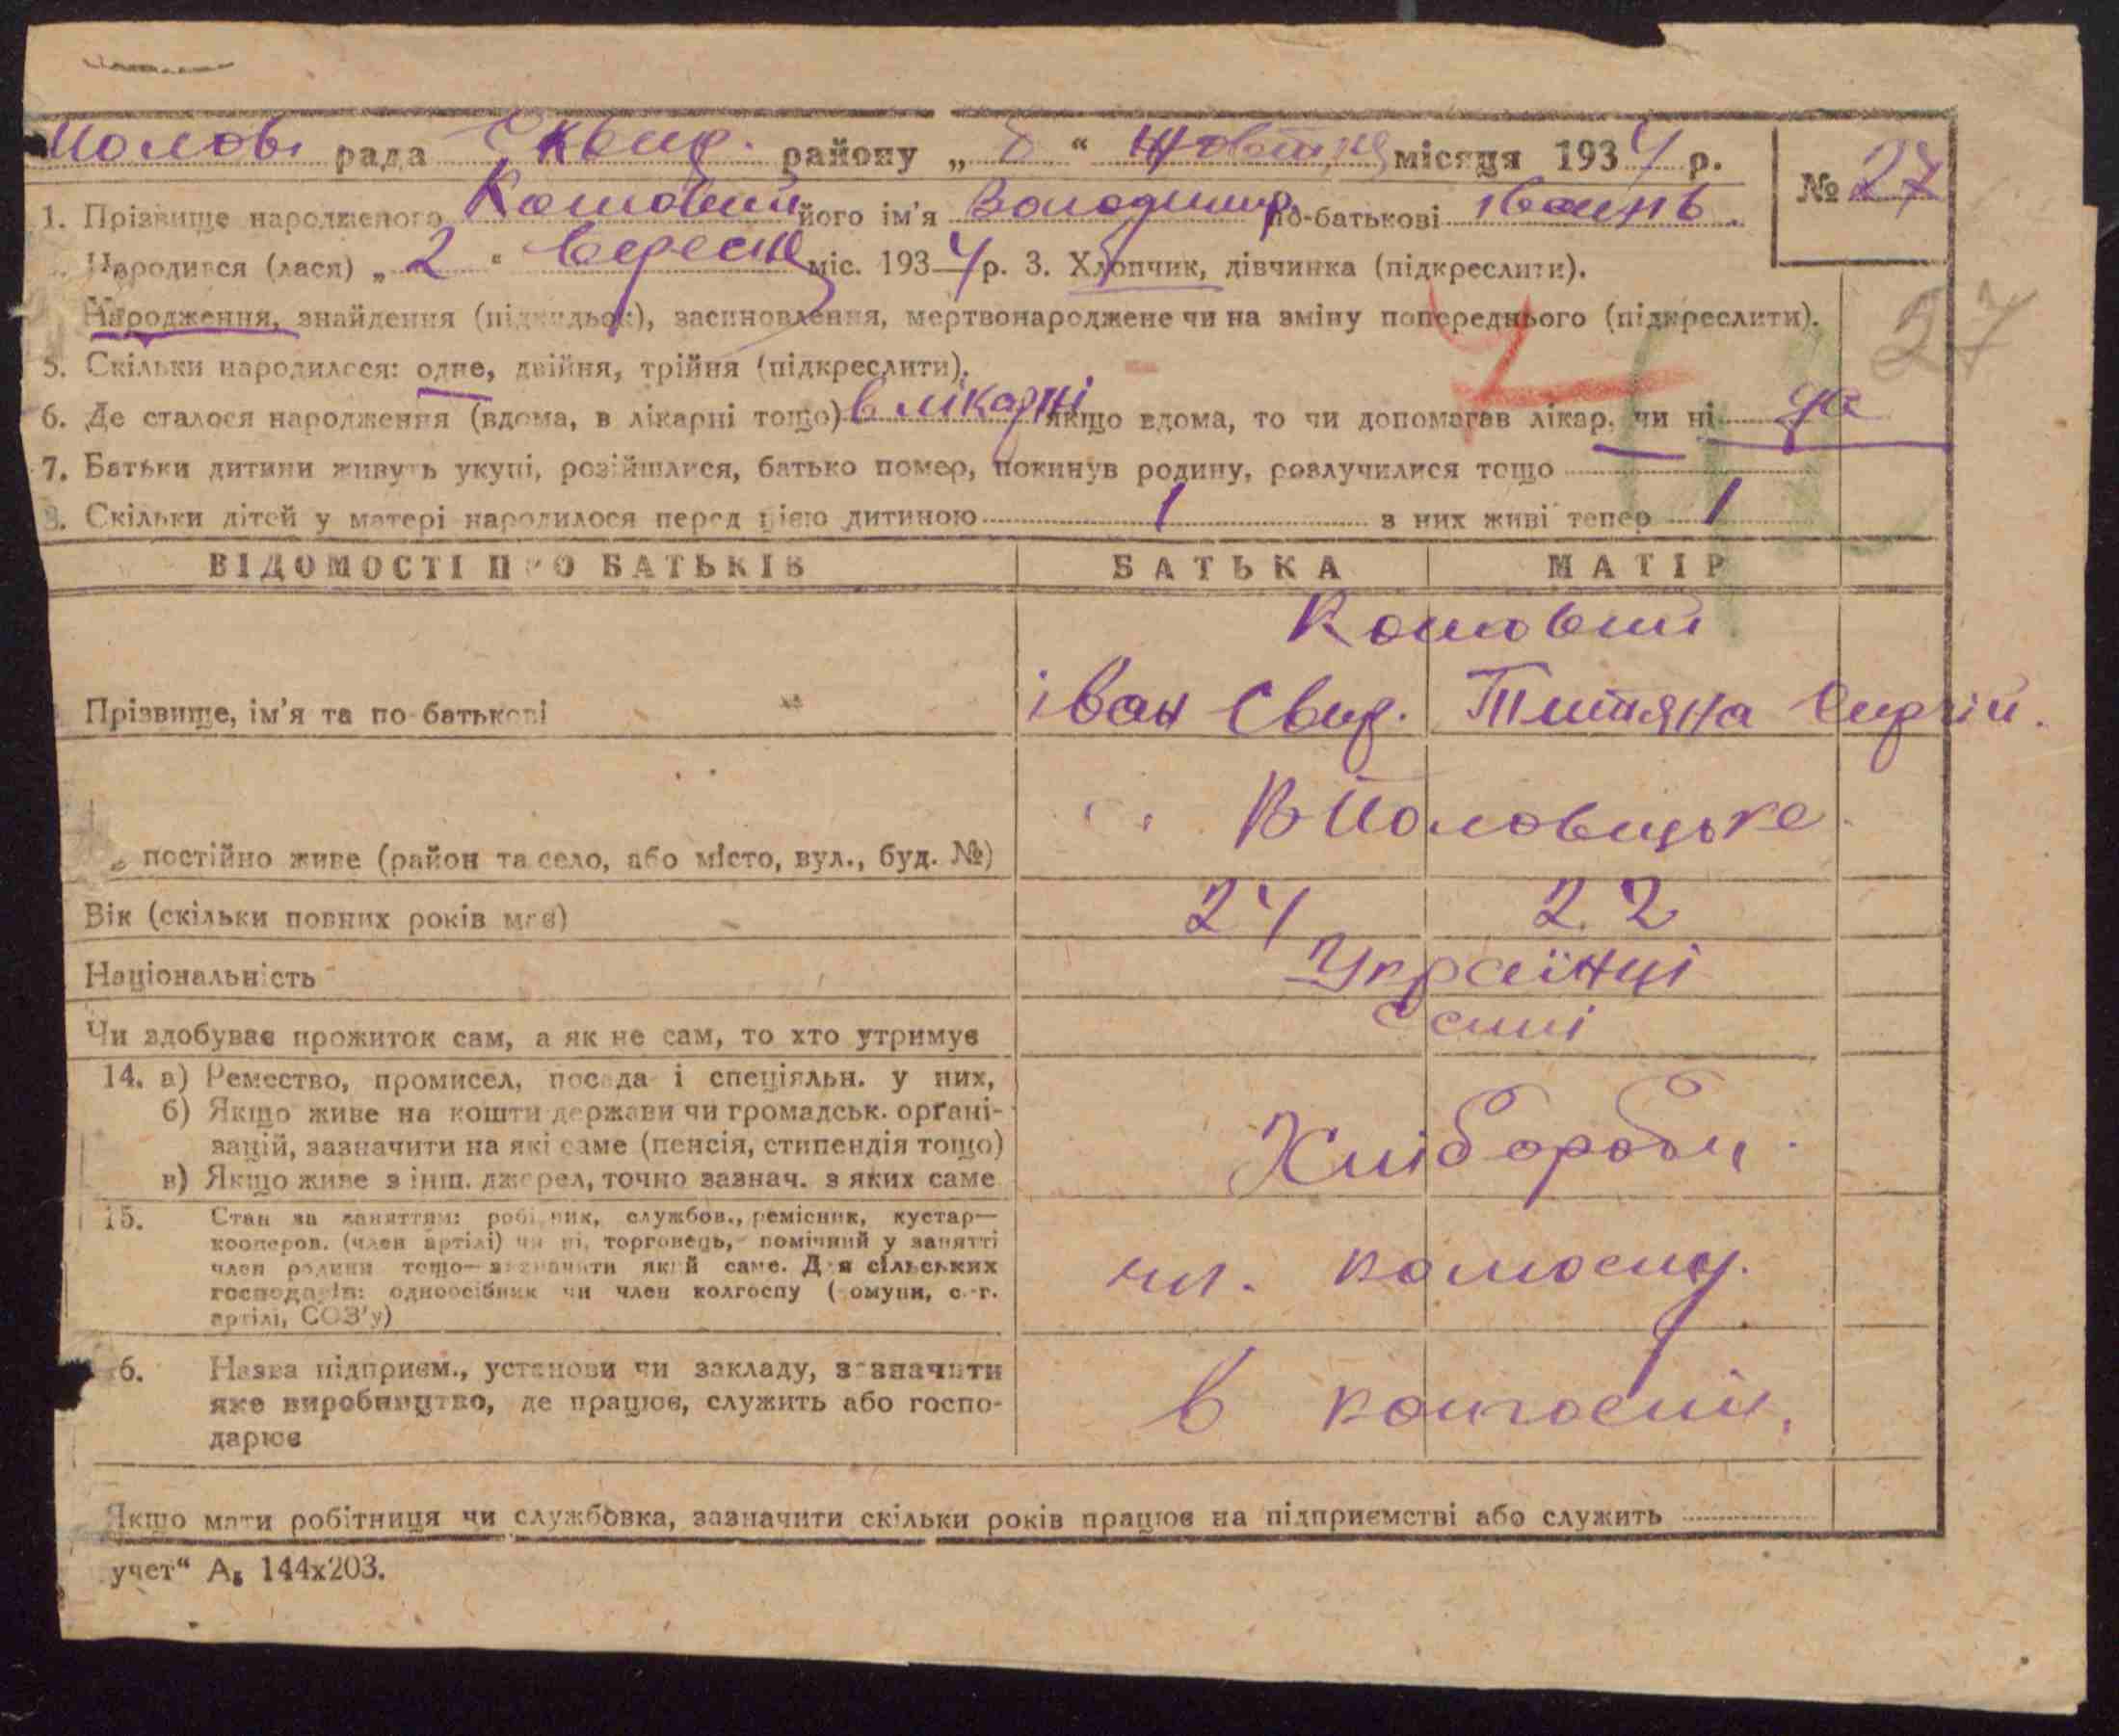 Полов. рада Сквир. району „ 8 “ жовтня місяця 1934 р.
№ 27
1. Прізвище народженого Кошовий його ім'я Володимир по-батькові Іванов.
Народився (лася) „ 2 “ вересня міс. 1934 р. 3. Хлопчик, дівчинка (підкреслити).
Народження, знайдення (підкидьок), засиновлення, мертвонароджене чи на зміну попереднього (підкреслити).
27
5. Скільки народилося: одне, двійня, трійня (підкреслити).
6. Де сталося народження (вдома, в лікарні тощо) в лікарні якщо вдома, то чи допомагав лікар, чи ні да
7. Батьки дитини живуть укупі, розійшлися, батько помер, покинув родину, розлучилися тощо
8. Скільки дітей у матері народилося перед цією дитиною 1 з них живі тепер 1
ВІДОМОСТІ ПРО БАТЬКІВ БАТЬКА МАТІР
Кошовий
Прізвище, ім'я та по-батькові Іван Свир. Титяна Сиргій.
„ постійно живе (район та село, або місто, вул., буд. №) В Половецьке
Вік (скільки повних років має) 24 22
Національність Українці
Чи здобуває прожиток сам, а як не сам, то хто утримує самі
14. а) Ремество, промисел, посада і спеціяльн. у них,
б) Якщо живе на кошти держави чи громадськ. орґані-
зацій, зазначити на які саме (пенсія, стипендія тощо)
в) Якщо живе з інш. джерел, точно зазнач. з яких саме
Хлібороби
15. Стан за заняттям: робітник, службов., ремісник, кустар—
кооперов. (член артілі) чи ні, торговець, помічний у занятті
член родини тощо—зазначити який саме. Для сільських
господарів: одноосібник чи член колгоспу (комуни, с.-г.
артілі, СОЗ'у)
чл. колгоспу.
16. Назва підприєм., установи чи закладу, зазначити
яке виробництво, де працює, служить або госпо-
дарює
в колгоспи,
Якщо мати робітниця чи службовка, зазначити скільки років працює на підприємстві або служить
учет“ А₅ 144х203.